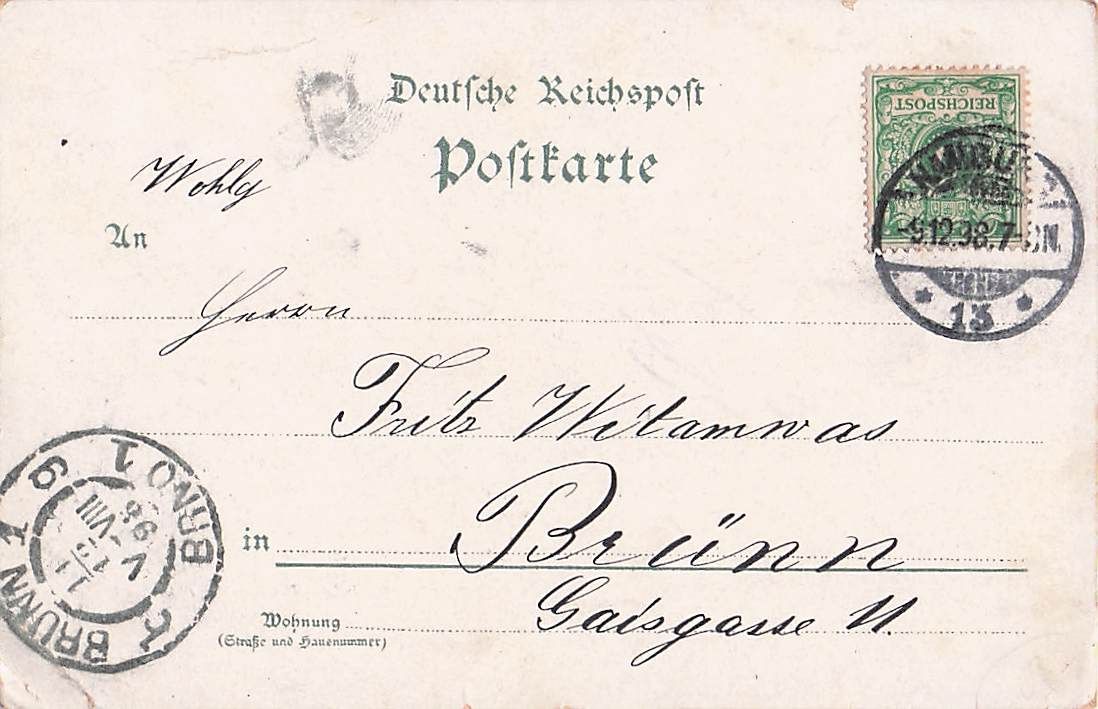 Deutsche Reichspost
Postkarte
REICHSPOST
-5.12.98.7-8N.
13
Wohlg
An
Herrn
Fritz Witamwas
in Brünn
Gaisgasse 11.
Wohnung
(Straße und Hausnummer)
BRNO 1
BRÜNN 1